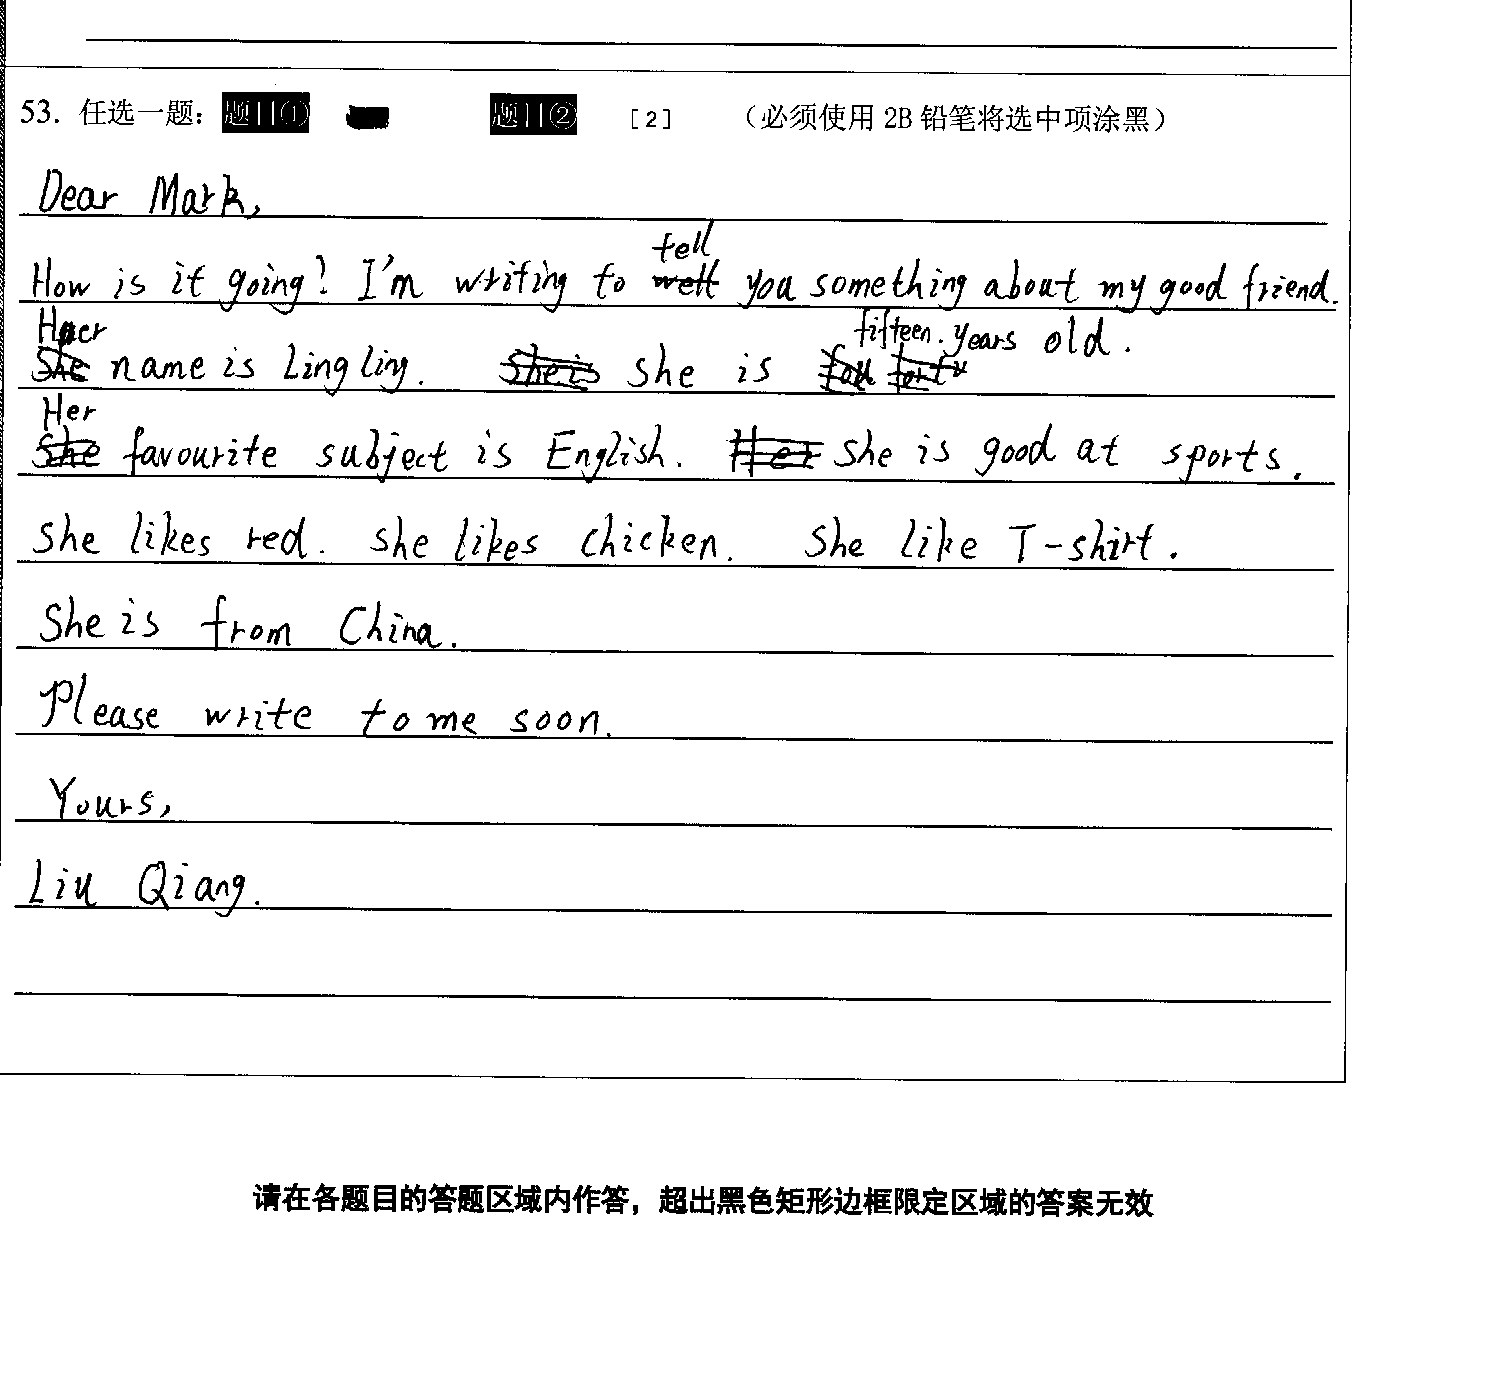 53. 任选一题： 题目① 题目② [2] （必须使用 2B 铅笔将选中项涂黑）
Dear Mark,
How is it going? I'm writing to tell you something about my good friend.
Her name is Ling Ling. she is fifteen. years old.
Her favourite subject is English. she is good at sports.
she likes red. she likes chicken. She like T-shirt.
She is from China.
Please write to me soon.
Yours,
Liu Qiang.
请在各题目的答题区域内作答，超出黑色矩形边框限定区域的答案无效